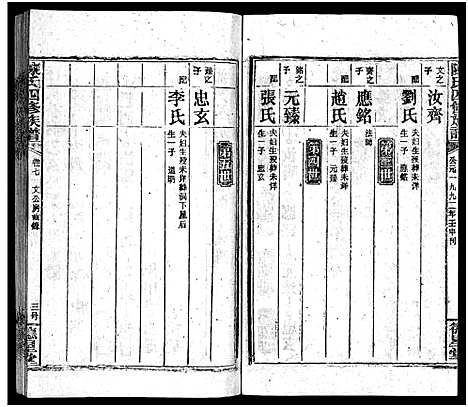 文之子
汝齊
配
劉氏
夫妇生殁葬未洋
生一子 應銘
第三世
齊之子
應銘
法師
配
趙氏
夫妇生殁葬未洋
生一子 元臻
第四世
銘之子
元臻
配
張氏
夫妇生殁葬未洋
生一子 忠玄
第五世
臻之子
忠玄
配
李氏
夫妇生殁未洋葬洞下屋后
生一子 道明
公元一九九二年壬申刊
氏四修族譜
卷七
文公房